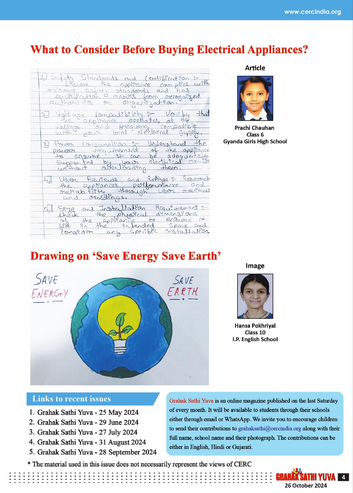 www.cercindia.org
What to Consider Before Buying Electrical Appliances?
1) Safety Standards and Certification :-
Ensure the appliance complies with
safety standards and has
certification marks from recognized
authorities or organization.
2) Voltage Compatibility :- Verify that
the appliance operates at the
voltage and frequency compatible
with your local electrical supply.
3) Power Consumption :- Understand the
power requirement of the appliance
to ensure it can be adequately
supported by your electrical
without overloading them.
4) User Reviews and Ratings :- Research
the appliances performance and
reliability through user reviews
and ratings.
5) Size and Installation Requirement :-
check the physical dimensions
the appliance to ensure it
fit in the intended space and
location any specific installation
Article
Prachi Chauhan
Class 6
Gyanda Girls High School
Drawing on ‘Save Energy Save Earth’
SAVE
ENERGY
SAVE
EARTH
Image
Hansa Pokhriyal
Class 10
I.P. English School
Links to recent issues
1. Grahak Sathi Yuva - 25 May 2024
2. Grahak Sathi Yuva - 29 June 2024
3. Grahak Sathi Yuva - 27 July 2024
4. Grahak Sathi Yuva - 31 August 2024
5. Grahak Sathi Yuva - 28 September 2024
Grahak Sathi Yuva is an online magazine published on the last Saturday
of every month. It will be available to students through their schools
either through email or WhatsApp. We invite you to encourage children
to send their contributions to grahaksathi@cercindia.org along with their
full name, school name and their photograph. The contributions can be
either in English, Hindi or Gujarati.
* The material used in this issue does not necessarily represent the views of CERC
GRAHAK SATHI YUVA
4
26 October 2024